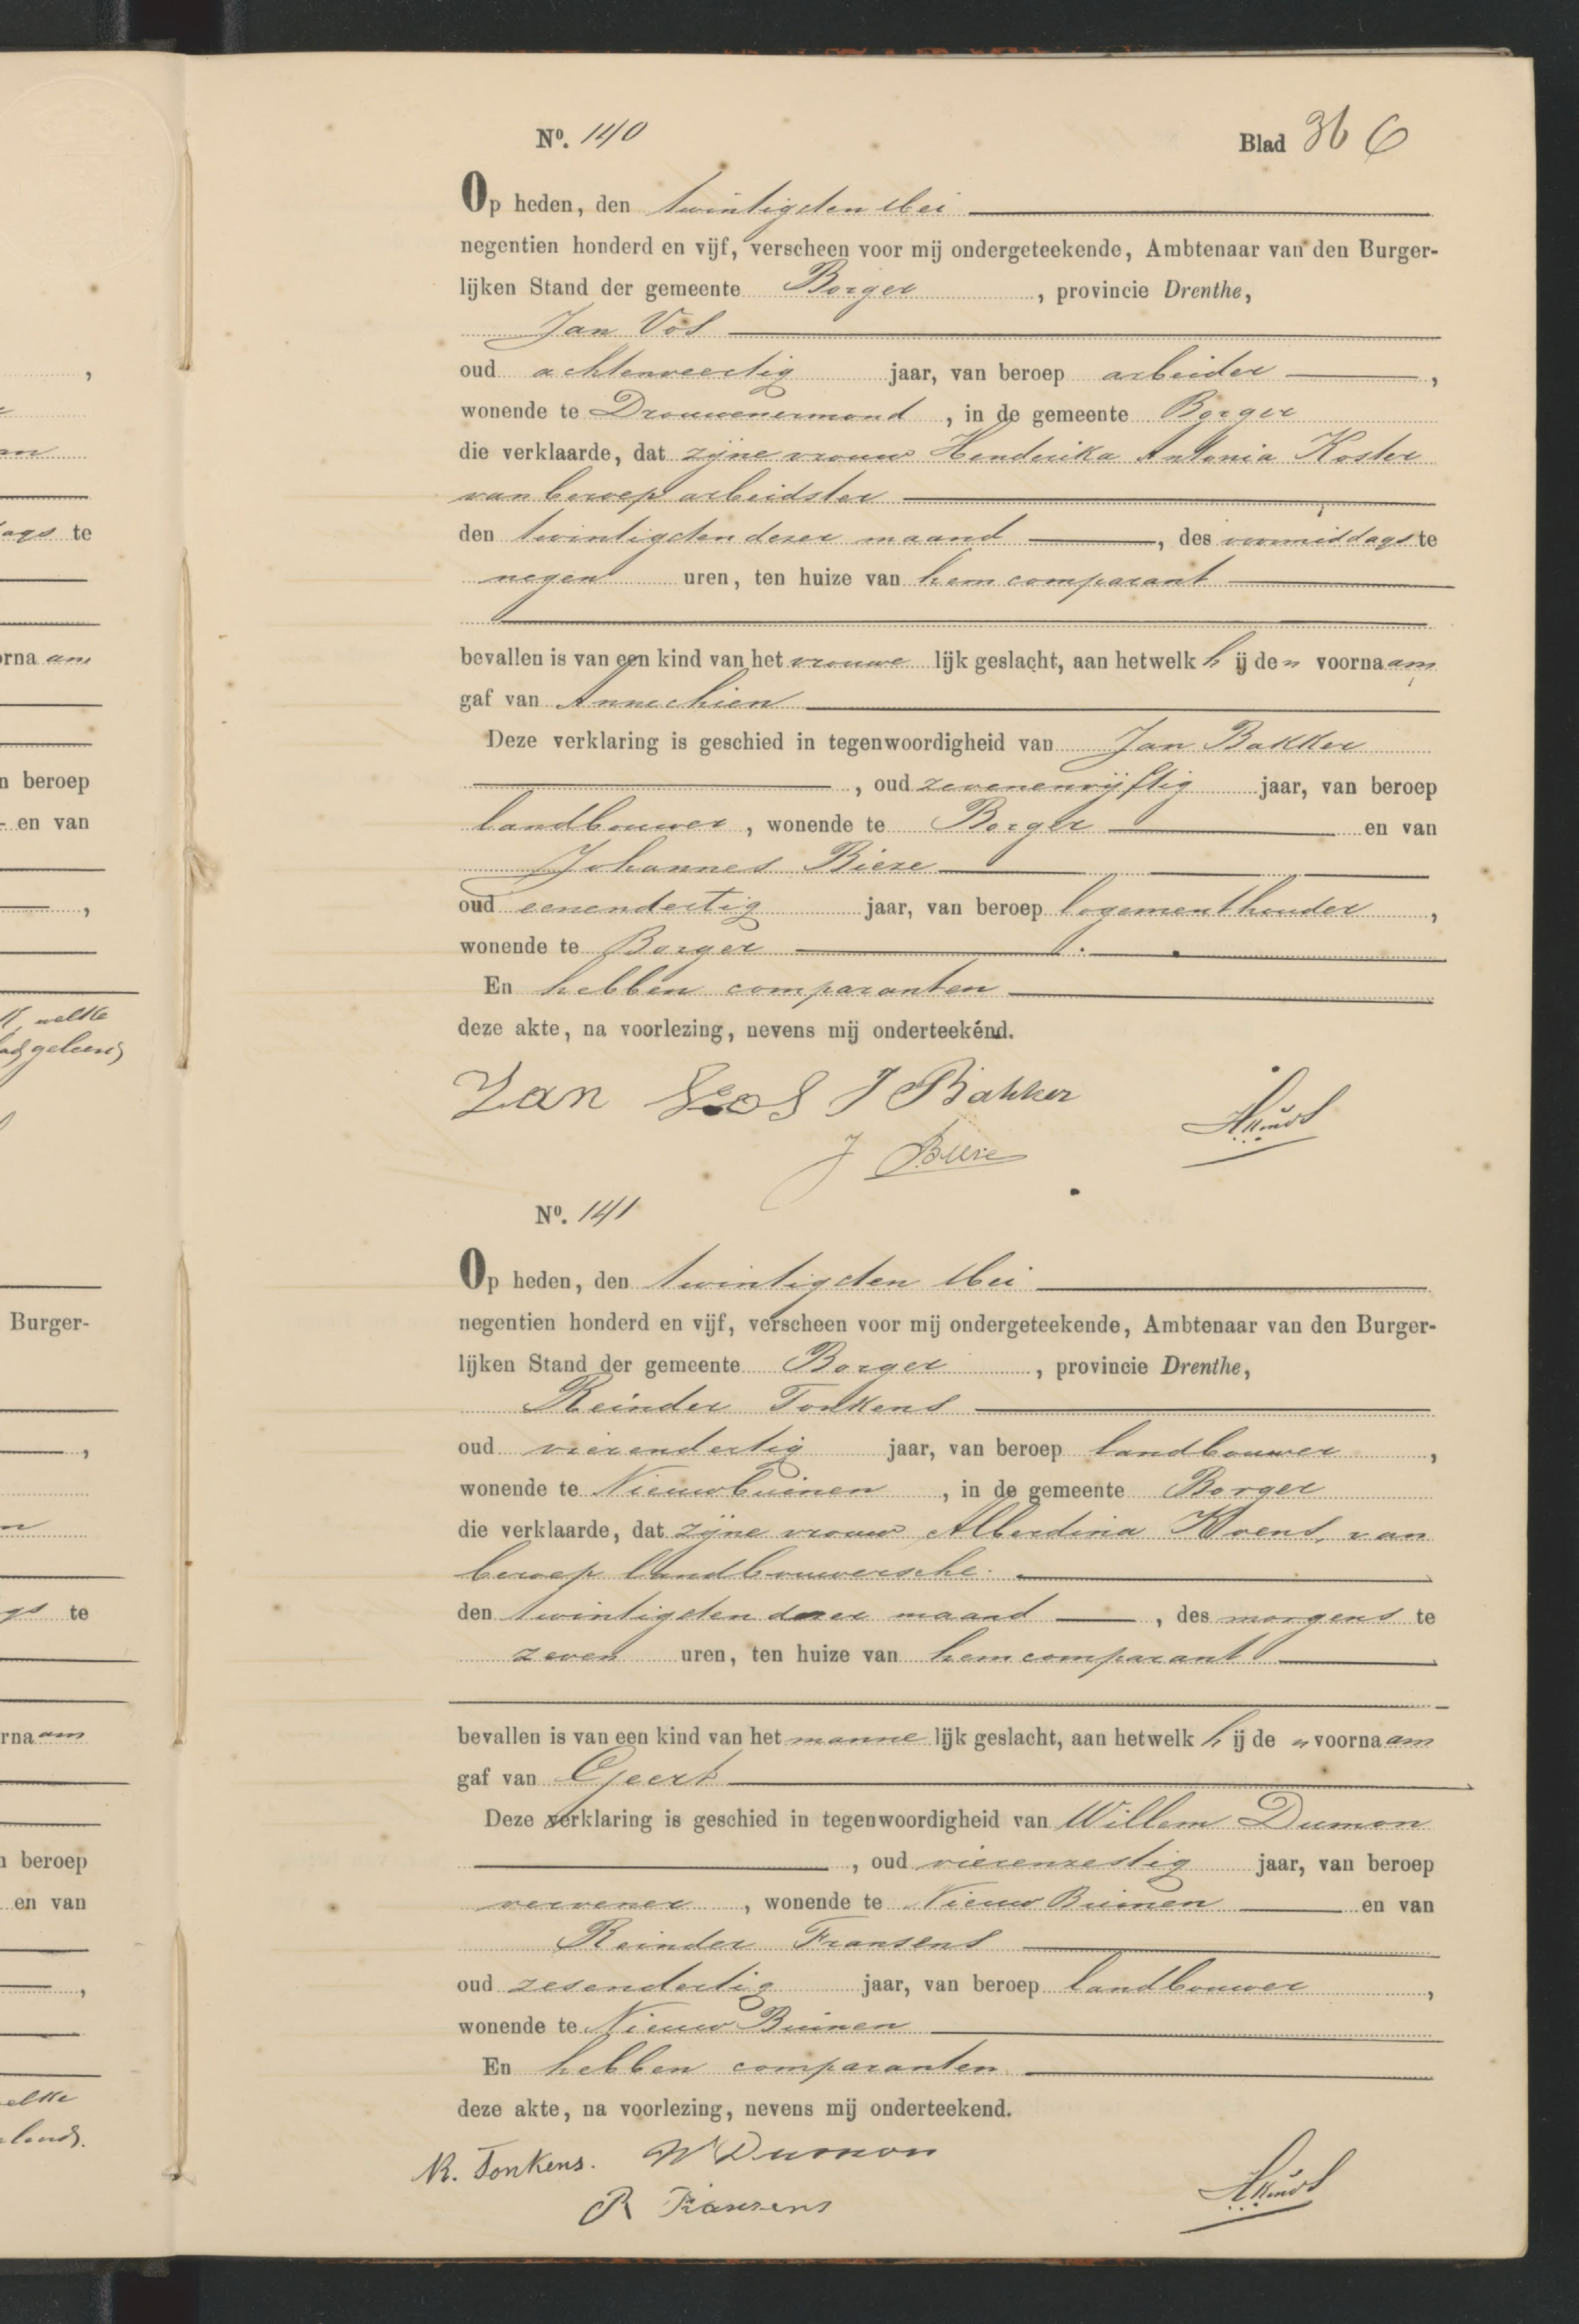 Nº. 140
Blad 36
Op heden, den twintigsten Mei
negentien honderd en vijf, verscheen voor mij ondergeteekende, Ambtenaar van den Burger-
lijken Stand der gemeente Borger, provincie Drenthe,
Jan Vos
oud achtenveertig jaar, van beroep arbeider,
wonende te Drouwenermond, in de gemeente Borger
die verklaarde, dat zijne vrouw Henderika Antonia Koster
van beroep arbeidster
den twintigsten dezer maand, des voormiddags te
negen uren, ten huize van hem comparant
bevallen is van een kind van het vrouwelijk geslacht, aan hetwelk hij den voornaam
gaf van Annechien
Deze verklaring is geschied in tegenwoordigheid van Jan Bakker
, oud zevenenvijftig jaar, van beroep
landbouwer, wonende te Borger en van
Johannes Bieze
oud eenendertig jaar, van beroep logementhouder,
wonende te Borger
En hebben comparanten
deze akte, na voorlezing, nevens mij onderteekend.
Jan Vos J Bakker
J Bieze
Nº. 141
Op heden, den twintigsten Mei
negentien honderd en vijf, verscheen voor mij ondergeteekende, Ambtenaar van den Burger-
lijken Stand der gemeente Borger, provincie Drenthe,
Reinder Tonkens
oud vierendertig jaar, van beroep landbouwer,
wonende te Nieuwbuinen, in de gemeente Borger
die verklaarde, dat zijne vrouw Alberdina Kroens, van
beroep landbouwersche.
den twintigsten dezer maand, des morgens te
zeven uren, ten huize van hem comparant
bevallen is van een kind van het mannelijk geslacht, aan hetwelk hij den voornaam
gaf van Geert
Deze verklaring is geschied in tegenwoordigheid van Willem Dumon
, oud vierenzestig jaar, van beroep
vervener, wonende te Nieuw Buinen en van
Reinder Fransens
oud zesendertig jaar, van beroep landbouwer,
wonende te Nieuw Buinen
En hebben comparanten
deze akte, na voorlezing, nevens mij onderteekend.
R. Tonkens. W Dumon
R Fransens